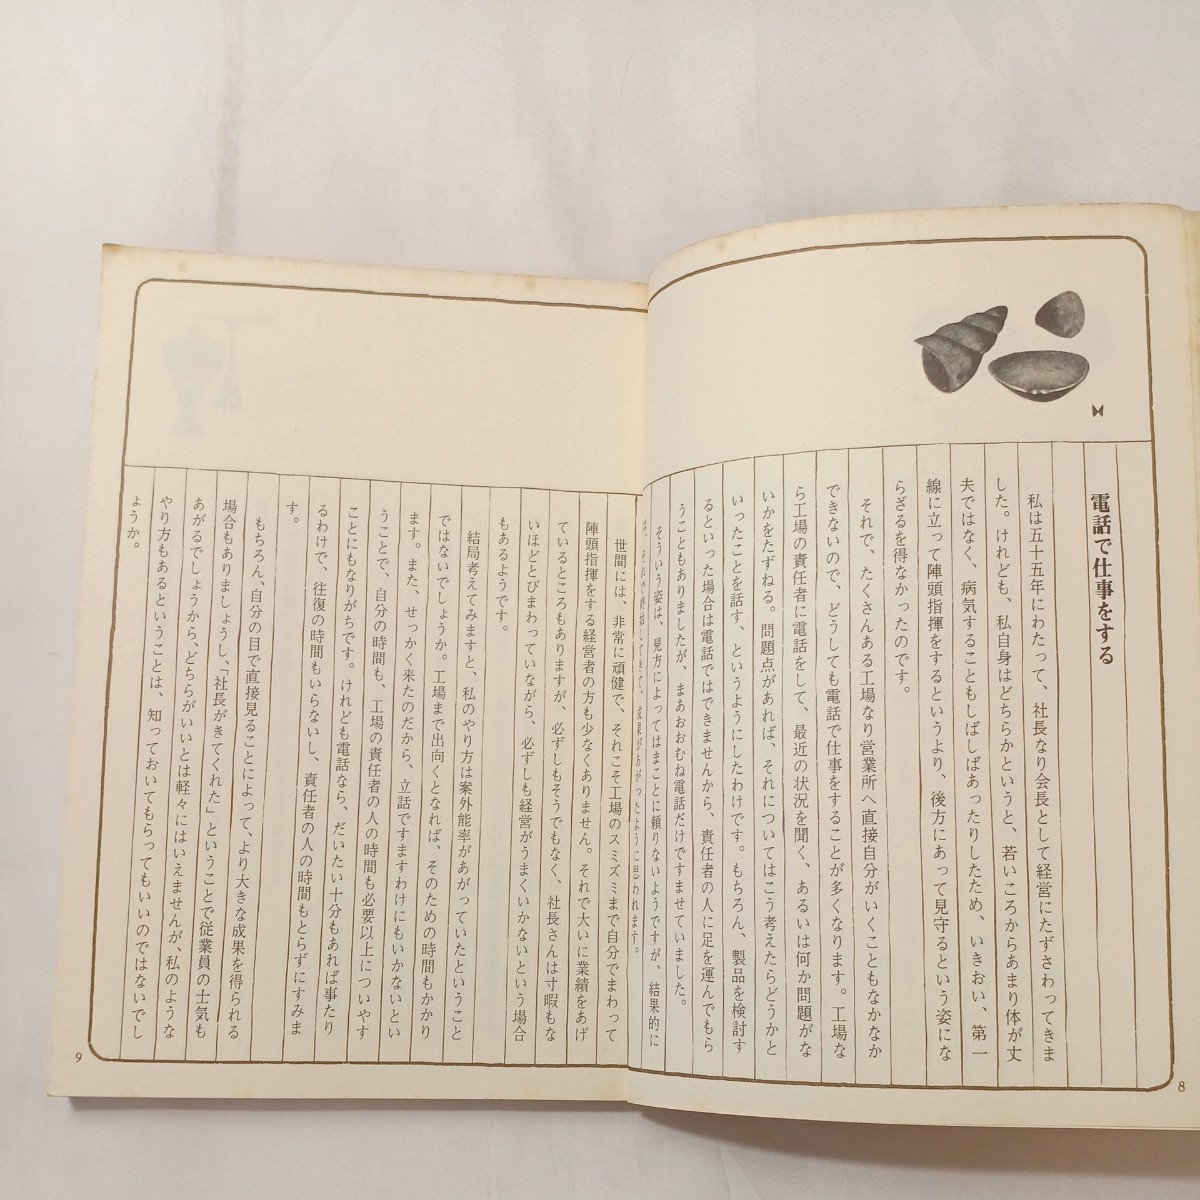 電話で仕事をする
私は五十五年にわたって、社長なり会長として経営にたずさわってきま
した。けれども、私自身はどちらかというと、若いころからあまり体が丈
夫ではなく、病気することもしばしばあったりしたため、いきおい、第一
線に立って陣頭指揮をするというより、後方にあって見守るという姿にな
らざるを得なかったのです。
それで、たくさんある工場なり営業所へ直接自分がいくこともなかなか
できないので、どうしても電話で仕事をすることが多くなります。工場な
ら工場の責任者に電話をして、最近の状況を聞く、あるいは何か問題がな
いかをたずねる。問題点があれば、それについてはこう考えたらどうかと
いったことを話す、というようにしたわけです。もちろん、製品を検討す
るといった場合は電話ではできませんから、責任者の人に足を運んでもら
うこともありましたが、まあおおむね電話だけですませていました。
そういう姿は、見方によってはまことに頼りないようですが、結果的に
成果があがったように思われます。
8
世間には、非常に頑健で、それこそ工場のスミズミまで自分でまわって
陣頭指揮をする経営者の方も少なくありません。それで大いに業績をあげ
ているところもありますが、必ずしもそうでもなく、社長さんは寸暇もな
いほどとびまわっていながら、必ずしも経営がうまくいかないという場合
もあるようです。
結局考えてみますと、私のやり方は案外能率があがっていたということ
ではないでしょうか。工場まで出向くとなれば、そのための時間もかかり
ます。また、せっかく来たのだから、立話ですますわけにもいかないとい
うことで、自分の時間も、工場の責任者の人の時間も必要以上についやす
ことにもなりがちです。けれども電話なら、だいたい十分もあれば事たり
るわけで、往復の時間もいらないし、責任者の人の時間もとらずにすみま
す。
もちろん、自分の目で直接見ることによって、より大きな成果を得られる
場合もありましょうし、「社長がきてくれた」ということで従業員の士気も
あがるでしょうから、どちらがいいとは軽々にはいえませんが、私のような
やり方もあるということは、知っておいてもらってもいいのではないでし
ょうか。
9